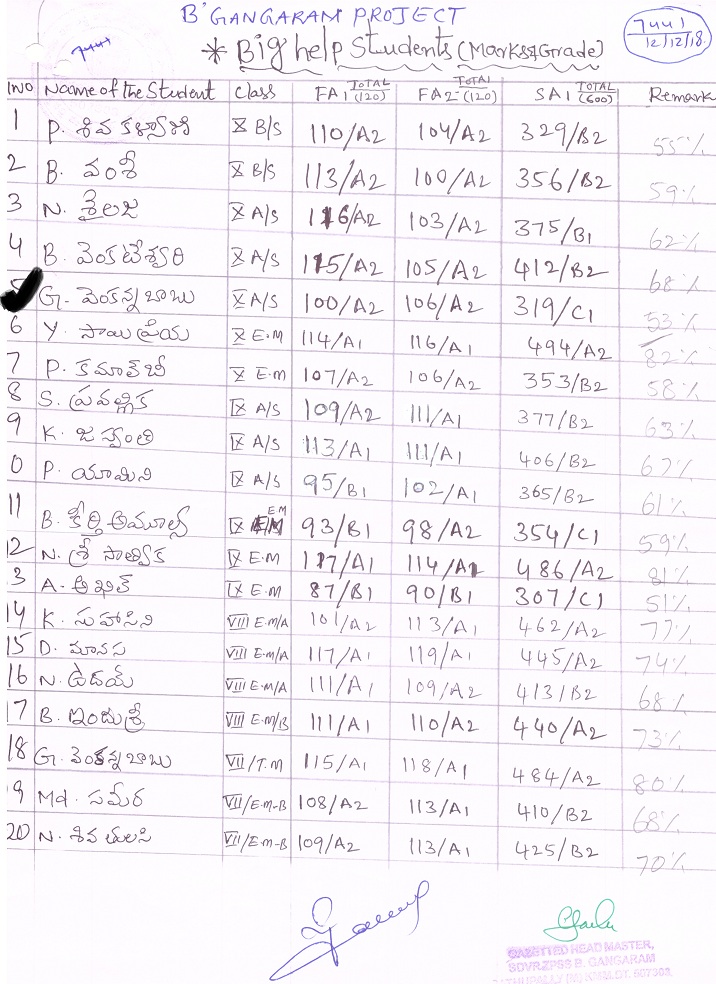 B' GANGARAM PROJECT
7441
* Big help Students (Marks & Grade)
7441
12/12/18
No Name of the Student Class FA1 TOTAL (120) FA2 TOTAL (120) SA1 TOTAL (600) Remark
1 P. శివ కళ్యాణి X B/S 110/A2 104/A2 329/B2 55%
2 B. వంశీ X B/S 113/A2 100/A2 356/B2 59%
3 N. శైలజ X A/S 116/A2 103/A2 375/B1 62%
4 B. వెంకటేశ్వరి X A/S 115/A2 105/A2 412/B2 68%
5 G. వెంకన్న బాబు X A/S 100/A2 106/A2 319/C1 53%
6 Y. సాయి ప్రియ X E.M 114/A1 116/A1 494/A2 82%
7 P. కమాల్‌బీ X E.M 107/A2 106/A2 353/B2 58%
8 S. ప్రవల్లిక IX A/S 109/A2 111/A1 377/B2 63%
9 K. జస్వంతి IX A/S 113/A1 111/A1 406/B2 67%
0 P. యామిని IX A/S 95/B1 102/A1 365/B2 61%
11 B. కీర్తి అమూల్య IX EM 93/B1 98/A2 354/C1 59%
12 N. శ్రీ సాత్విక IX E.M 117/A1 114/A1 486/A2 81%
3 A. అఖిల్ IX E.M 87/B1 90/B1 307/C1 51%
14 K. సుహాసిని VIII E.M/A 101/A2 113/A1 462/A2 77%
15 D. మానస VIII E.M/A 117/A1 119/A1 445/A2 74%
16 N. ఉదయ్ VIII E.M/A 111/A1 109/A2 413/B2 68%
17 B. ఇందుశ్రీ VIII E.M/B 111/A1 110/A2 440/A2 73%
18 G. వెంకన్న బాబు VII/T.M 115/A1 118/A1 484/A2 80%
9 Md. సమీర VII/E.M-B 108/A2 113/A1 410/B2 68%
20 N. శివ తులసి VII/E.M-B 109/A2 113/A1 425/B2 70%
GAZETTED HEAD MASTER,
SDVR.ZPSS B. GANGARAM